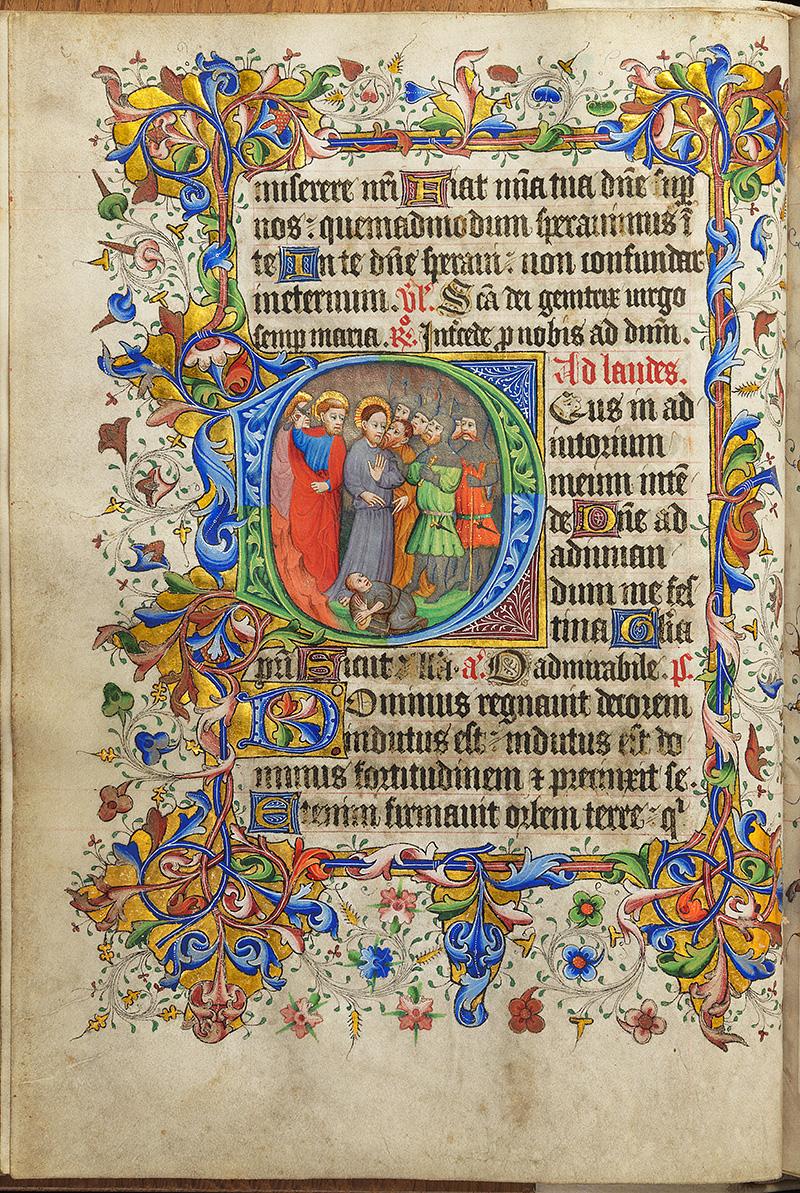 miserere nr̃i Fiat mĩa tua dñe sup
nos : quemadmodum sperauimus ĩ
te In te dñe speraui : non confundar
ineternum. V̄s. Sc̃a dei genitrix uirgo
semp maria. R̊. Intercede p nobis ad dnm̃.
Ad laudes.
Deus in ad
iutorium
meum inte
de Dñe ad
adiuuan
dum me fes
tina Gl̃ia
pr̃i Sicut A. O admirabile. ps.
Dominus regnauit decorem
indutus est : indutus est do
minus fortitudinem ⁊ precinxit se.
Etenim firmauit orbem terre : qͥ